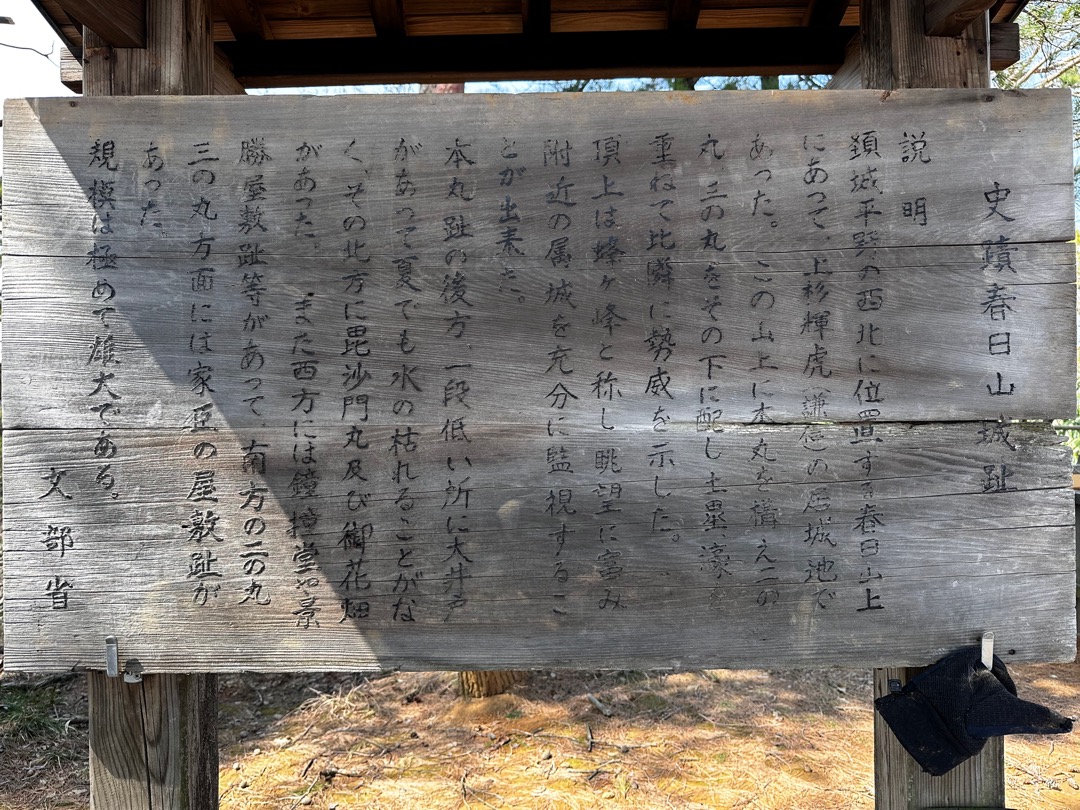 史蹟春日山城趾
説明
頚城平野の西北に位置する春日山上
にあって、上杉輝虎（謙信）の居城池で
あった。この山上に本丸を構え二の
丸、三の丸をその下に配し土塁、濠を
重ねて比隣に勢威を示した。
頂上は蜂ヶ峰と称し眺望に富み
附近の属城を充分に監視するこ
とが出来た。
本丸趾の後方、一段低い所に大井戸
があって夏でも水の枯れることがな
く、その北方に毘沙門丸及び御花畑
があった。また西方には鐘撞堂や景
勝屋敷趾等があって、南方の二の丸
三の丸方面には家臣の屋敷趾が
あった。
規模は極めて雄大である。
文部省